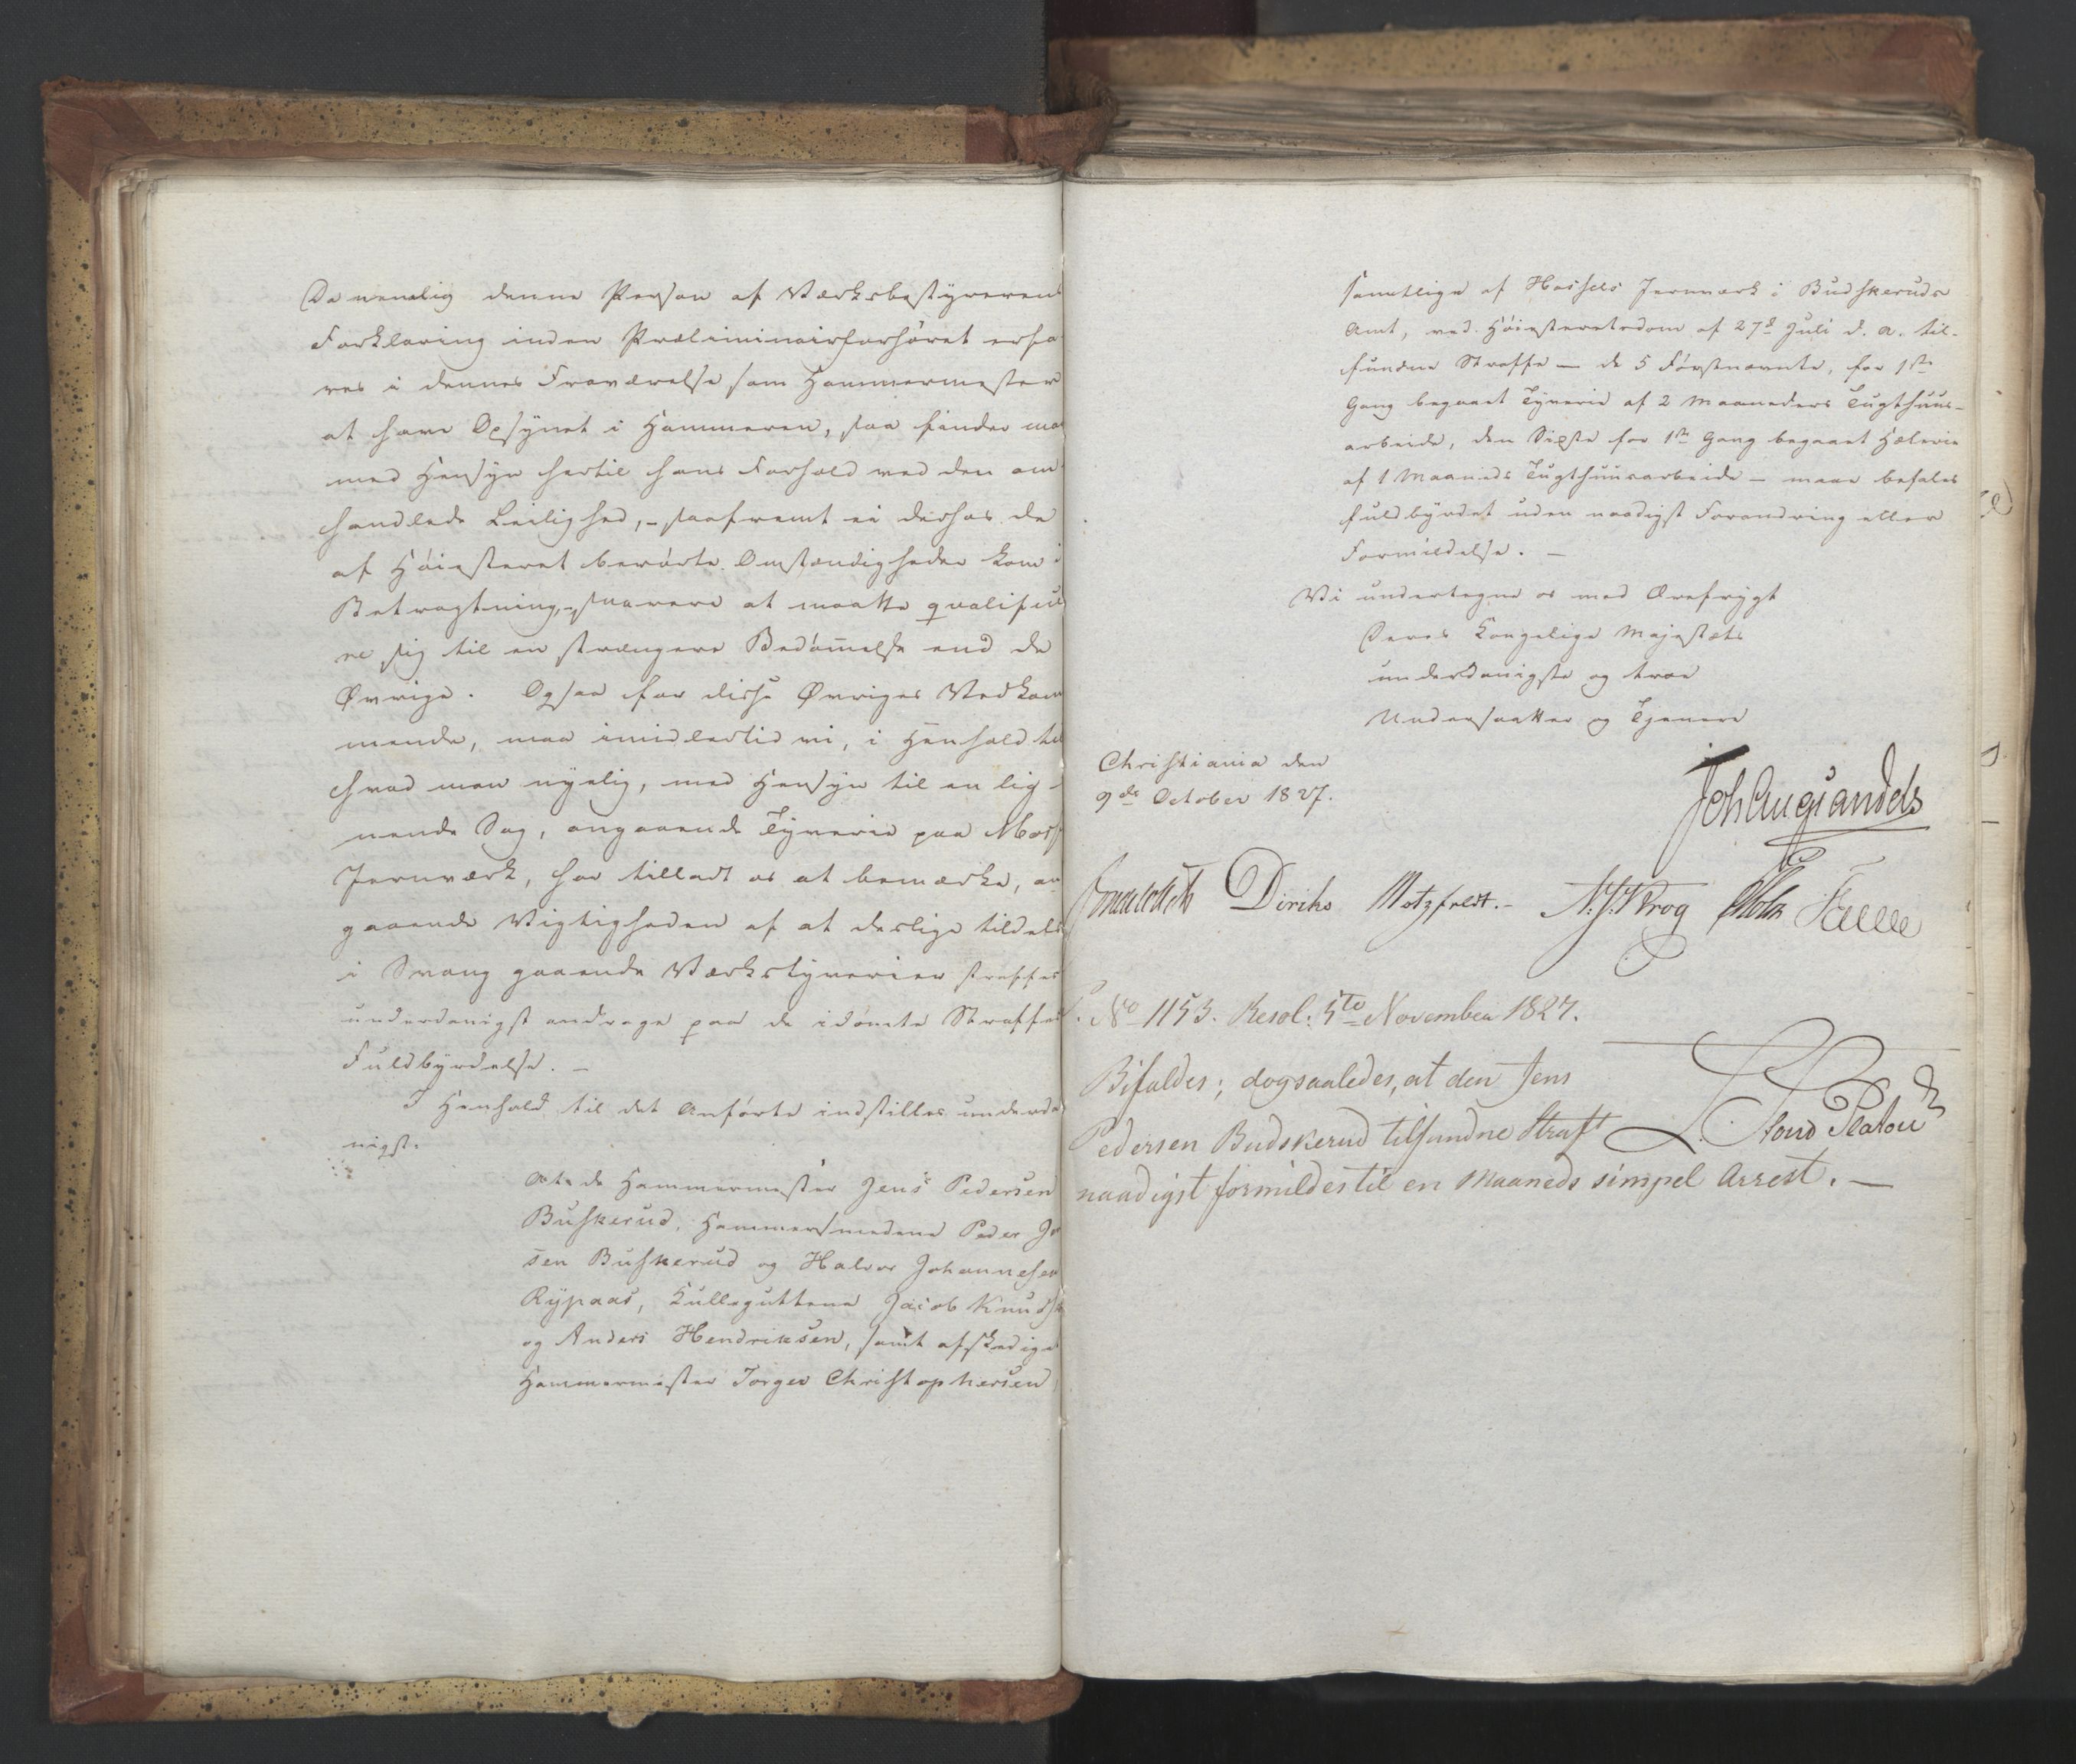 Da nemlig denne Person af Værksbestyrerens
Forklaring inden Præliminairforhöret erfa
res i dennes Fraværelse som Hammermester
at have Opsynet i Hammeren, saa finder ma
med Hensyn hertil hans Forhold ved den om
handlede Leilighed, - saafremt ei derhos de
af Höiesteret berörte Omstændigheder kom i
Betragtning, - snarere at maatte qvalifice
re sig til en strængere Bedömelse end de
Øvrige. Ogsaa for disse Øvriges Vedkom
mende, maa imidlertid vi, i Henhold til
hvad man nyelig, med Hensyn til en lig-
nende Sag, angaaende Tyverie paa Moss
Jernværk, har tilladt os at bemærke, an
gaaende Vigtigheden af at deslige tildels
i Svang gaaende Værkstyverier straffes
underdanigst andrage paa de idömte Straffes
Fuldbyrdelse. -
I Henhold til det Anförte indstilles underda
nigst.
At de Hammermester Jens Pedersen
Buskerud, Hammersmedene Peder Je
sen Buskerud og Halvor Johannesen
Rypaas, Kullegutterne Jacob Knuds
og Anders Hendriksen, samt afskedige
Hammermester Torger Christophersen
samtlige af Hassels Jernværk i Budskeruds
Amt, ved Höiesteretsdom af 27d Juli d. a. til-
fundne Straffe — de 5 Förstnævnte, for 1ste
Gang begaaet Tyverie af 2 Maaneders Tugthuus-
arbeide, den Sidste for 1ste Gang begaaet Hælerie
af 1 Maaneds Tugthuusarbeide — maae befales
fuldbyrdet uden naadigst Forandring eller
Formildelse. —
Vi undertegne os med Ærefrygt
Deres Kongelige Majestæts
underdanigste og troe
Undersaatter og Tjenere
Christiania den
9de October 1827.
Joh Aug Sandels
Diriks Motzfeldt. - Krog Holst Fasting
No 1153. Resol: 5te November 1827.
Bifaldes; dogsaaledes, at den Jens
Pedersen Budskerud tilfundne Straf
naadigst formildes til en Maaneds simpel Arrest. —
L. Stoud Platou